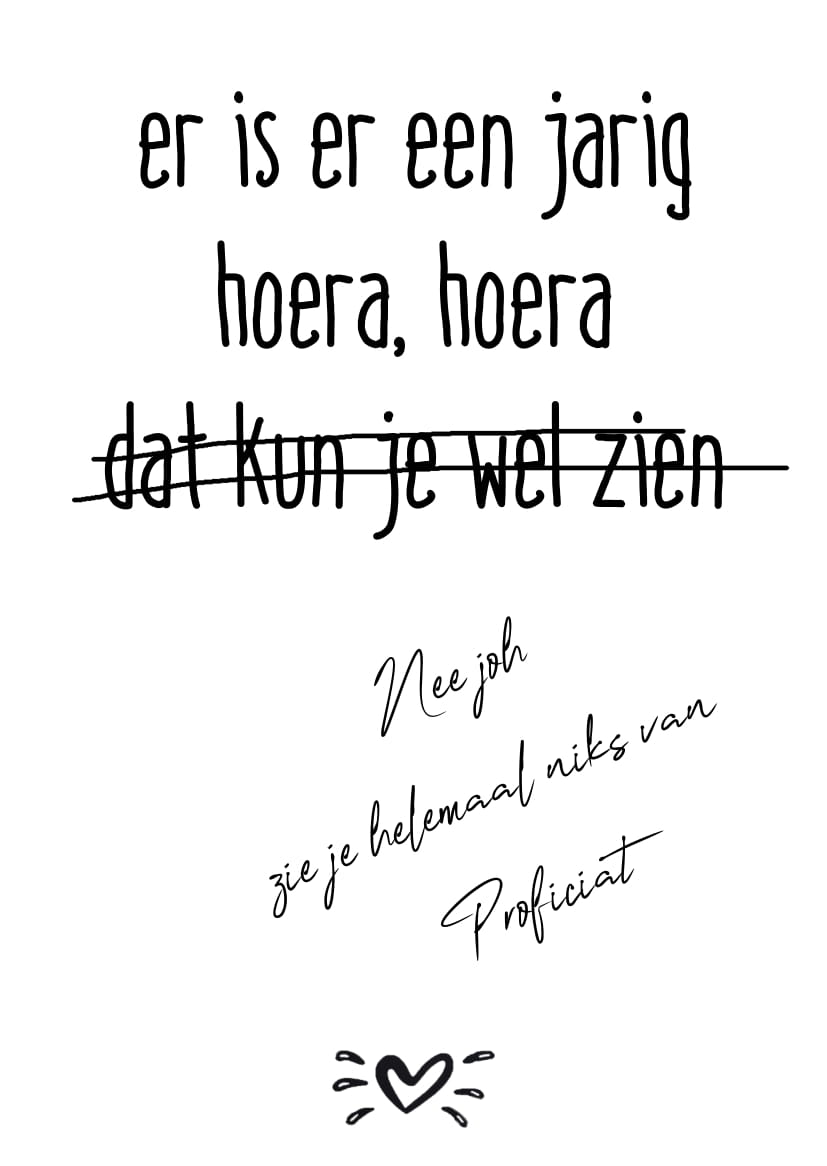 er is er een jarig
hoera, hoera
dat kun je wel zien
Nee joh
zie je helemaal niks van
Proficiat